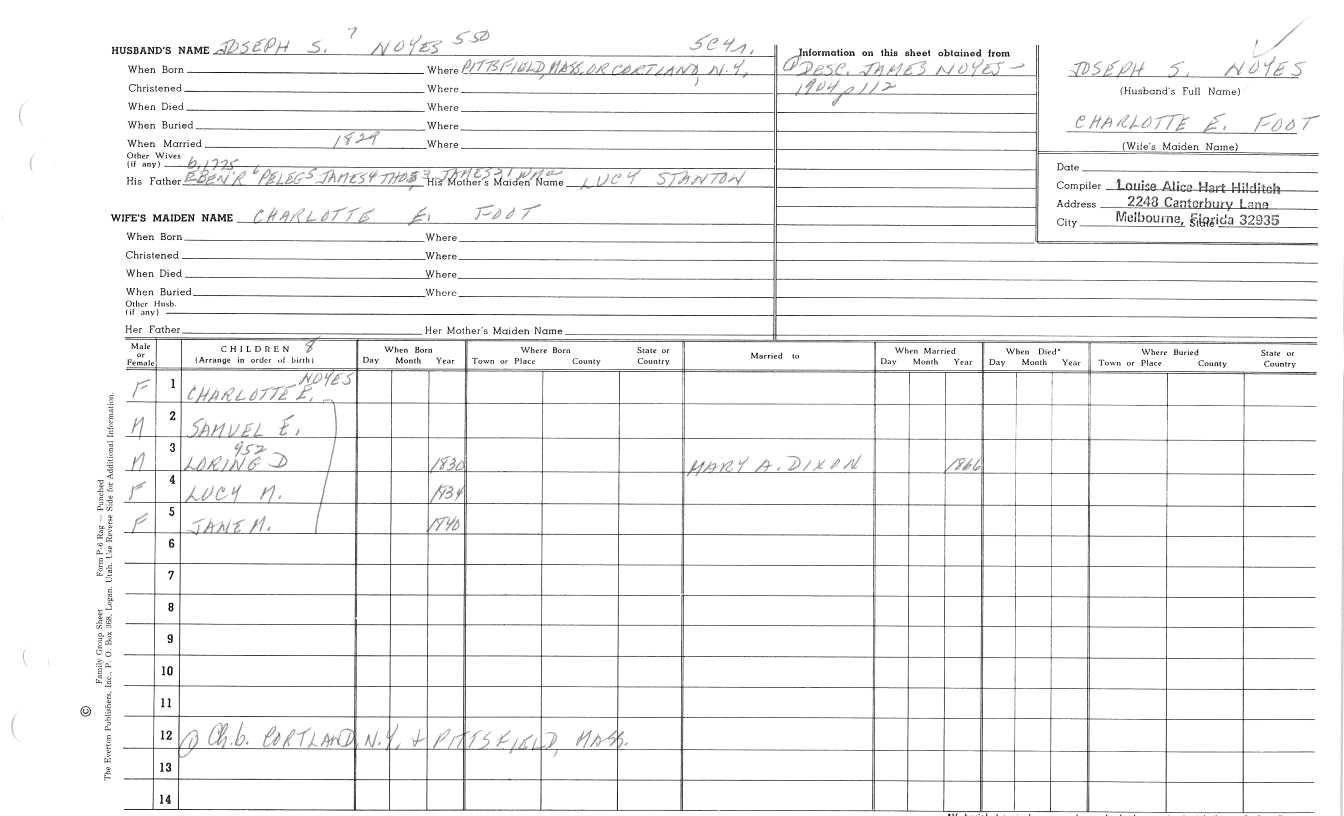 HUSBAND'S NAME JOSEPH S. 7 NOYES 550 5C41.
When Born Where PITTSFIELD, MASS. OR CORTLAND, N.Y.
Christened Where
When Died Where
When Buried Where
When Married 1829 Where
Other Wives
(if any) b. 1775
His Father EBEN'R 6 PELEG 5 JAMES 4 THOS 3 JAMES 2 1 Wm a His Mother's Maiden Name LUCY STANTON
WIFE'S MAIDEN NAME CHARLOTTE E. FOOT
When Born Where
Christened Where
When Died Where
When Buried Where
Other Husb.
(if any)
Her Father Her Mother's Maiden Name
Information on this sheet obtained from
① DESC. JAMES NOYES -
1904 p 112
JOSEPH S. NOYES
(Husband's Full Name)
CHARLOTTE E. FOOT
(Wife's Maiden Name)
Date
Compiler Louise Alice Hart Hilditch
Address 2248 Canterbury Lane
City Melbourne, Florida 32935 State
Male or Female CHILDREN 8 (Arrange in order of birth) When Born Day Month Year Where Born Town or Place County State or Country Married to When Married Day Month Year When Died* Day Month Year Where Buried Town or Place County State or Country
F 1 CHARLOTTE E. NOYES
M 2 SAMUEL E.
M 3 LORING D 952 1830 MARY A. DIXON 1866
F 4 LUCY M. 1834
F 5 JANE M. 1840
6
7
8
9
10
11
12 ① Ch. b. CORTLAND, N.Y. + PITTSFIELD, MASS.
13
14
© Family Group Sheet Form P-6 Rag — Punched
The Everton Publishers, Inc., P. O. Box 368, Logan, Utah. Use Reverse Side for Additional Information.